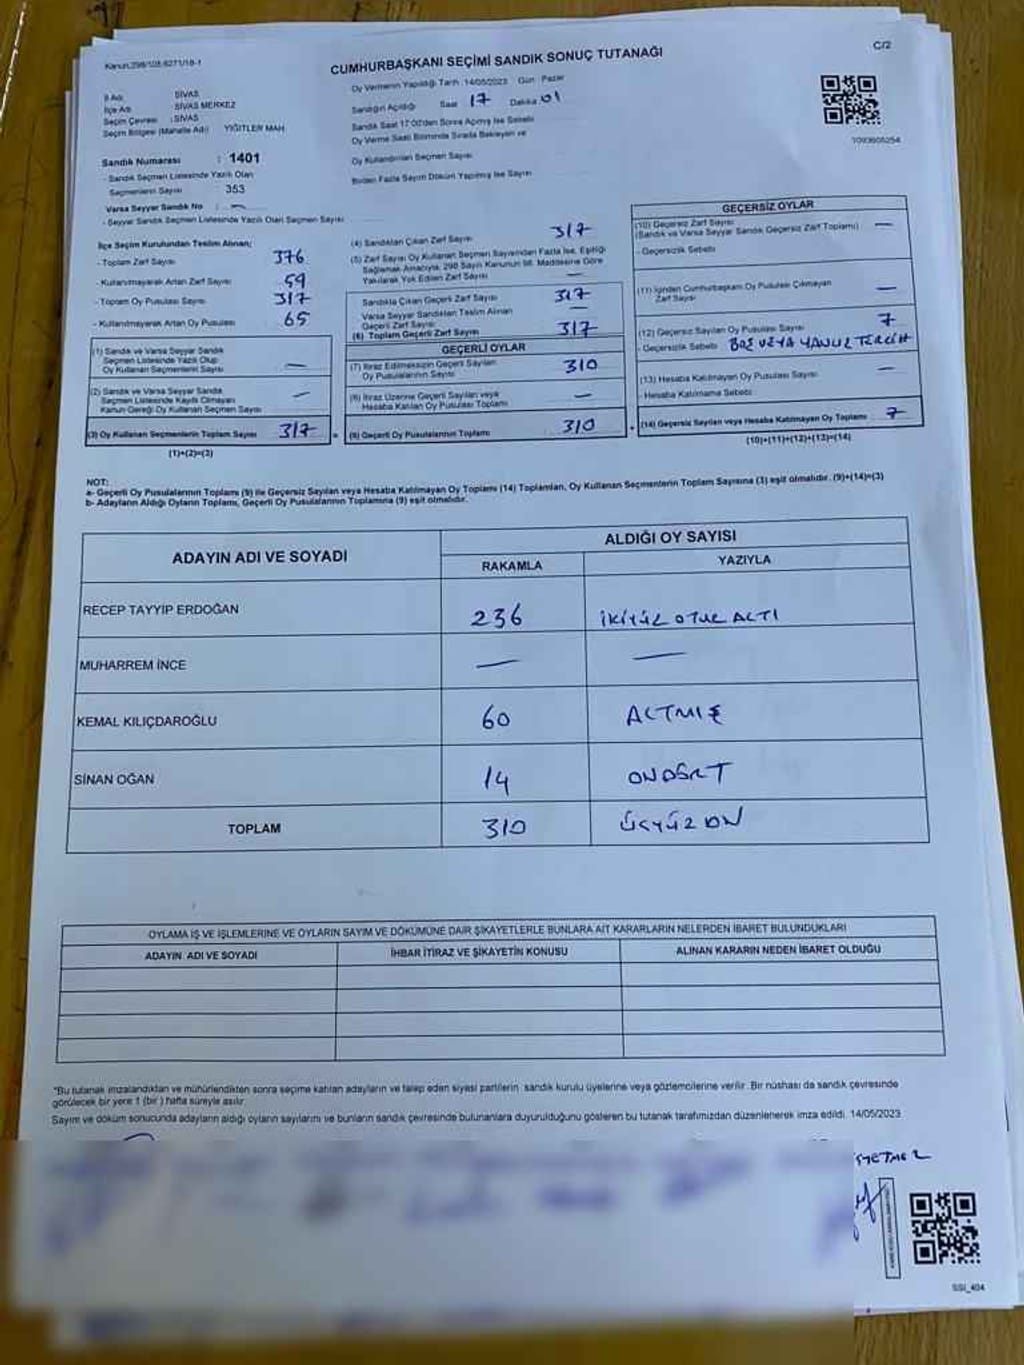 Kanun:298/105;6271/18-1
CUMHURBAŞKANI SEÇİMİ SANDIK SONUÇ TUTANAĞI
C/2
İl Adı : SİVAS
İlçe Adı : SİVAS MERKEZ
Seçim Çevresi : SİVAS
Seçim Bölgesi (Mahalle Adı) YİĞİTLER MAH
Sandık Numarası : 1401
- Sandık Seçmen Listesinde Yazılı Olan
Seçmenlerin Sayısı 353
Varsa Seyyar Sandık No : —
- Seyyar Sandık Seçmen Listesinde Yazılı Olan Seçmen Sayısı
Oy Vermenin Yapıldığı Tarih :14/05/2023 Gün : Pazar
Sandığın Açıldığı Saat 17 Dakika 01
Sandık Saat 17:00'den Sonra Açılmış İse Sebebi
Oy Verme Saati Bitiminde Sırada Bekleyen ve
Oy Kullandırılan Seçmen Sayısı
Birden Fazla Sayım Döküm Yapılmış İse Sayısı
1093605254
İlçe Seçim Kurulundan Teslim Alınan;
- Toplam Zarf Sayısı 376
- Kullanılmayarak Artan Zarf Sayısı 59
- Toplam Oy Pusulası Sayısı 317
- Kullanılmayarak Artan Oy Pusulası 65
(1) Sandık ve Varsa Seyyar Sandık
Seçmen Listesinde Yazılı Olup
Oy Kullanan Seçmenlerin Sayısı —
(2) Sandık ve Varsa Seyyar Sandık
Seçmen Listesinde Kayıtlı Olmayan
Kanun Gereği Oy Kullanan Seçmen Sayısı —
(3) Oy Kullanan Seçmenlerin Toplam Sayısı 317
(1)+(2)=(3)
(4) Sandıktan Çıkan Zarf Sayısı 317
(5) Zarf Sayısı Oy Kullanan Seçmen Sayısından Fazla İse, Eşitliği
Sağlamak Amacıyla, 298 Sayılı Kanunun 98. Maddesine Göre
Yakılarak Yok Edilen Zarf Sayısı —
Sandıkta Çıkan Geçerli Zarf Sayısı 317
Varsa Seyyar Sandıktan Teslim Alınan
Geçerli Zarf Sayısı —
(6) Toplam Geçerli Zarf Sayısı 317
GEÇERLİ OYLAR
(7) İtiraz Edilmeksizin Geçerli Sayılan
Oy Pusulalarının Sayısı 310
(8) İtiraz Üzerine Geçerli Sayılan veya
Hesaba Katılan Oy Pusulası Toplamı —
(9) Geçerli Oy Pusulalarının Toplamı 310
GEÇERSİZ OYLAR
(10) Geçersiz Zarf Sayısı
(Sandık ve Varsa Seyyar Sandık Geçersiz Zarf Toplamı) —
- Geçersizlik Sebebi
(11) İçinden Cumhurbaşkanı Oy Pusulası Çıkmayan
Zarf Sayısı —
(12) Geçersiz Sayılan Oy Pusulası Sayısı 7
- Geçersizlik Sebebi BOŞ VEYA YANLIŞ TERCİH
(13) Hesaba Katılmayan Oy Pusulası Sayısı —
- Hesaba Katılmama Sebebi
(14) Geçersiz Sayılan veya Hesaba Katılmayan Oy Toplamı 7
(10)+(11)+(12)+(13)=(14)
NOT:
a- Geçerli Oy Pusulalarının Toplamı (9) ile Geçersiz Sayılan veya Hesaba Katılmayan Oy Toplamı (14) Toplamları, Oy Kullanan Seçmenlerin Toplam Sayısına (3) eşit olmalıdır. (9)+(14)=(3)
b- Adayların Aldığı Oyların Toplamı, Geçerli Oy Pusulalarının Toplamına (9) eşit olmalıdır.
ADAYIN ADI VE SOYADI ALDIĞI OY SAYISI
RAKAMLA YAZIYLA
RECEP TAYYİP ERDOĞAN 236 İKİYÜZ OTUZ ALTI
MUHARREM İNCE — —
KEMAL KILIÇDAROĞLU 60 ALTMIŞ
SİNAN OĞAN 14 ONDÖRT
TOPLAM 310 ÜÇYÜZ ON
OYLAMA İŞ VE İŞLEMLERİNE VE OYLARIN SAYIM VE DÖKÜMÜNE DAİR ŞİKAYETLERLE BUNLARA AİT KARARLARIN NELERDEN İBARET BULUNDUKLARI
ADAYIN ADI VE SOYADI İHBAR İTİRAZ VE ŞİKAYETİN KONUSU ALINAN KARARIN NEDEN İBARET OLDUĞU
*Bu tutanak imzalandıktan ve mühürlendikten sonra seçime katılan adayların ve talep eden siyasi partilerin, sandık kurulu üyelerine veya gözlemcilerine verilir. Bir nüshası da sandık çevresinde
görülecek bir yere 1 (bir) hafta süreyle asılır.
Sayım ve döküm sonucunda adayların aldığı oyların sayılarını ve bunların sandık çevresinde bulunanlara duyurulduğunu gösteren bu tutanak tarafımızdan düzenlenerek imza edildi. 14/05/2023
SSI_404